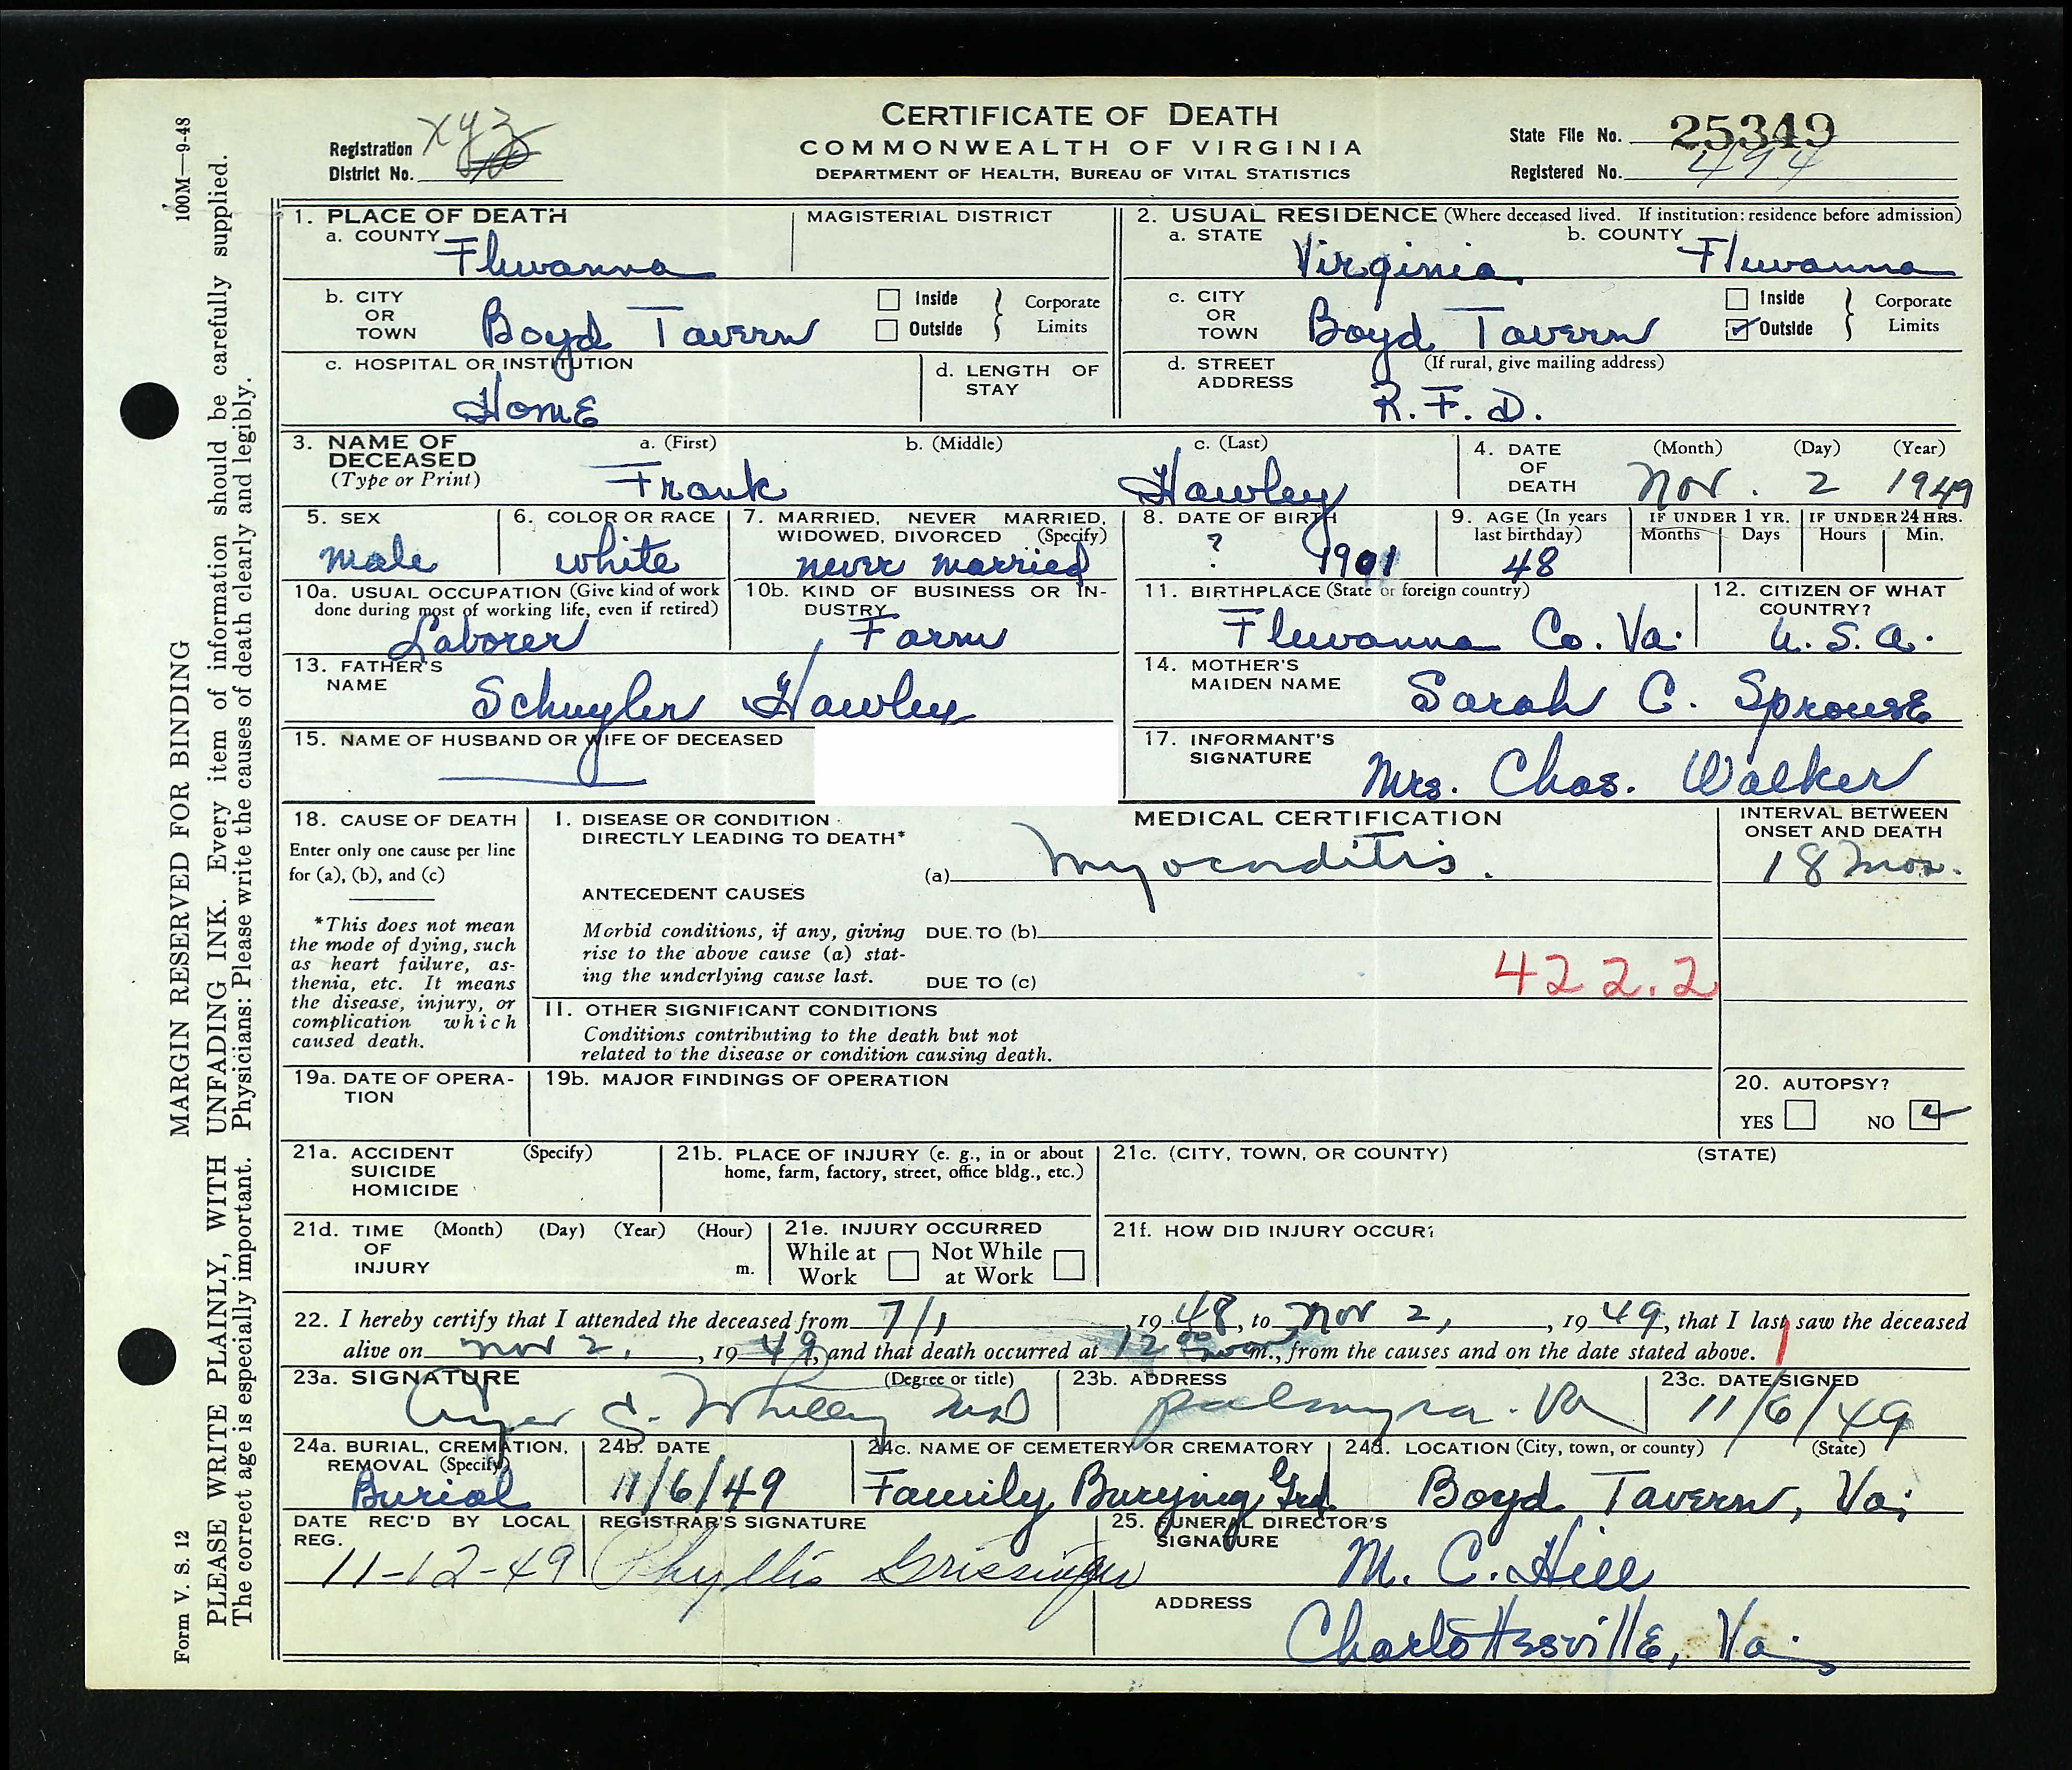 CERTIFICATE OF DEATH
COMMONWEALTH OF VIRGINIA
DEPARTMENT OF HEALTH, BUREAU OF VITAL STATISTICS
Registration District No. xyz
State File No. 25349
Registered No. 494
1. PLACE OF DEATH
a. COUNTY Fluvanna
MAGISTERIAL DISTRICT
b. CITY OR TOWN Boyd Tavern
Inside Outside Corporate Limits
c. HOSPITAL OR INSTITUTION Home
d. LENGTH OF STAY
2. USUAL RESIDENCE (Where deceased lived. If institution: residence before admission)
a. STATE Virginia b. COUNTY Fluvanna
c. CITY OR TOWN Boyd Tavern
Inside Outside Corporate Limits
d. STREET ADDRESS (If rural, give mailing address) R.F.D.
3. NAME OF DECEASED (Type or Print)
a. (First) Frank b. (Middle) c. (Last) Hawley
4. DATE OF DEATH (Month) (Day) (Year) Nov. 2 1949
5. SEX male
6. COLOR OR RACE white
7. MARRIED, NEVER MARRIED, WIDOWED, DIVORCED (Specify) never married
8. DATE OF BIRTH ? 1901
9. AGE (In years last birthday) 48
IF UNDER 1 YR. Months Days
IF UNDER 24 HRS. Hours Min.
10a. USUAL OCCUPATION (Give kind of work done during most of working life, even if retired) Laborer
10b. KIND OF BUSINESS OR INDUSTRY Farm
11. BIRTHPLACE (State or foreign country) Fluvanna Co. Va.
12. CITIZEN OF WHAT COUNTRY? U.S.A.
13. FATHER'S NAME Schuyler Hawley
14. MOTHER'S MAIDEN NAME Sarah C. Sprouse
15. NAME OF HUSBAND OR WIFE OF DECEASED
17. INFORMANT'S SIGNATURE Mrs. Chas. Walker
18. CAUSE OF DEATH
Enter only one cause per line for (a), (b), and (c)
*This does not mean the mode of dying, such as heart failure, asthenia, etc. It means the disease, injury, or complication which caused death.
MEDICAL CERTIFICATION
I. DISEASE OR CONDITION DIRECTLY LEADING TO DEATH*
(a) Myocarditis.
INTERVAL BETWEEN ONSET AND DEATH
18 mos.
ANTECEDENT CAUSES
Morbid conditions, if any, giving rise to the above cause (a) stating the underlying cause last.
DUE TO (b)
DUE TO (c)
422.2
II. OTHER SIGNIFICANT CONDITIONS
Conditions contributing to the death but not related to the disease or condition causing death.
19a. DATE OF OPERATION
19b. MAJOR FINDINGS OF OPERATION
20. AUTOPSY?
YES NO
21a. ACCIDENT SUICIDE HOMICIDE (Specify)
21b. PLACE OF INJURY (e. g., in or about home, farm, factory, street, office bldg., etc.)
21c. (CITY, TOWN, OR COUNTY) (STATE)
21d. TIME OF INJURY (Month) (Day) (Year) (Hour) m.
21e. INJURY OCCURRED
While at Work Not While at Work
21f. HOW DID INJURY OCCUR?
22. I hereby certify that I attended the deceased from 7/1, 1948, to Nov 2, 1949, that I last saw the deceased
alive on Nov 2, 1949, and that death occurred at 12 00 m., from the causes and on the date stated above.
23a. SIGNATURE (Degree or title)
23b. ADDRESS Palmyra. Va
23c. DATE SIGNED 11/6/49
24a. BURIAL, CREMATION, REMOVAL (Specify) Burial
24b. DATE 11/6/49
24c. NAME OF CEMETERY OR CREMATORY Family Burying Grd.
24d. LOCATION (City, town, or county) (State) Boyd Tavern, Va.
DATE REC'D BY LOCAL REG. 11-12-49
REGISTRAR'S SIGNATURE Phyllis
25. FUNERAL DIRECTOR'S SIGNATURE M. C. Hill
ADDRESS Charlottesville, Va.
100M—9-48
MARGIN RESERVED FOR BINDING
PLEASE WRITE PLAINLY, WITH UNFADING INK. Every item of information should be carefully supplied.
The correct age is especially important. Physicians: Please write the causes of death clearly and legibly.
Form V. S. 12